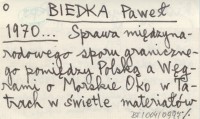 BIEDKA Paweł
1970... Sprawa międzyna-
rodowego sporu graniczne-
go pomiędzy Polską a Wę-
grami o Morskie Oko w Ta-
trach w świetle materiałów